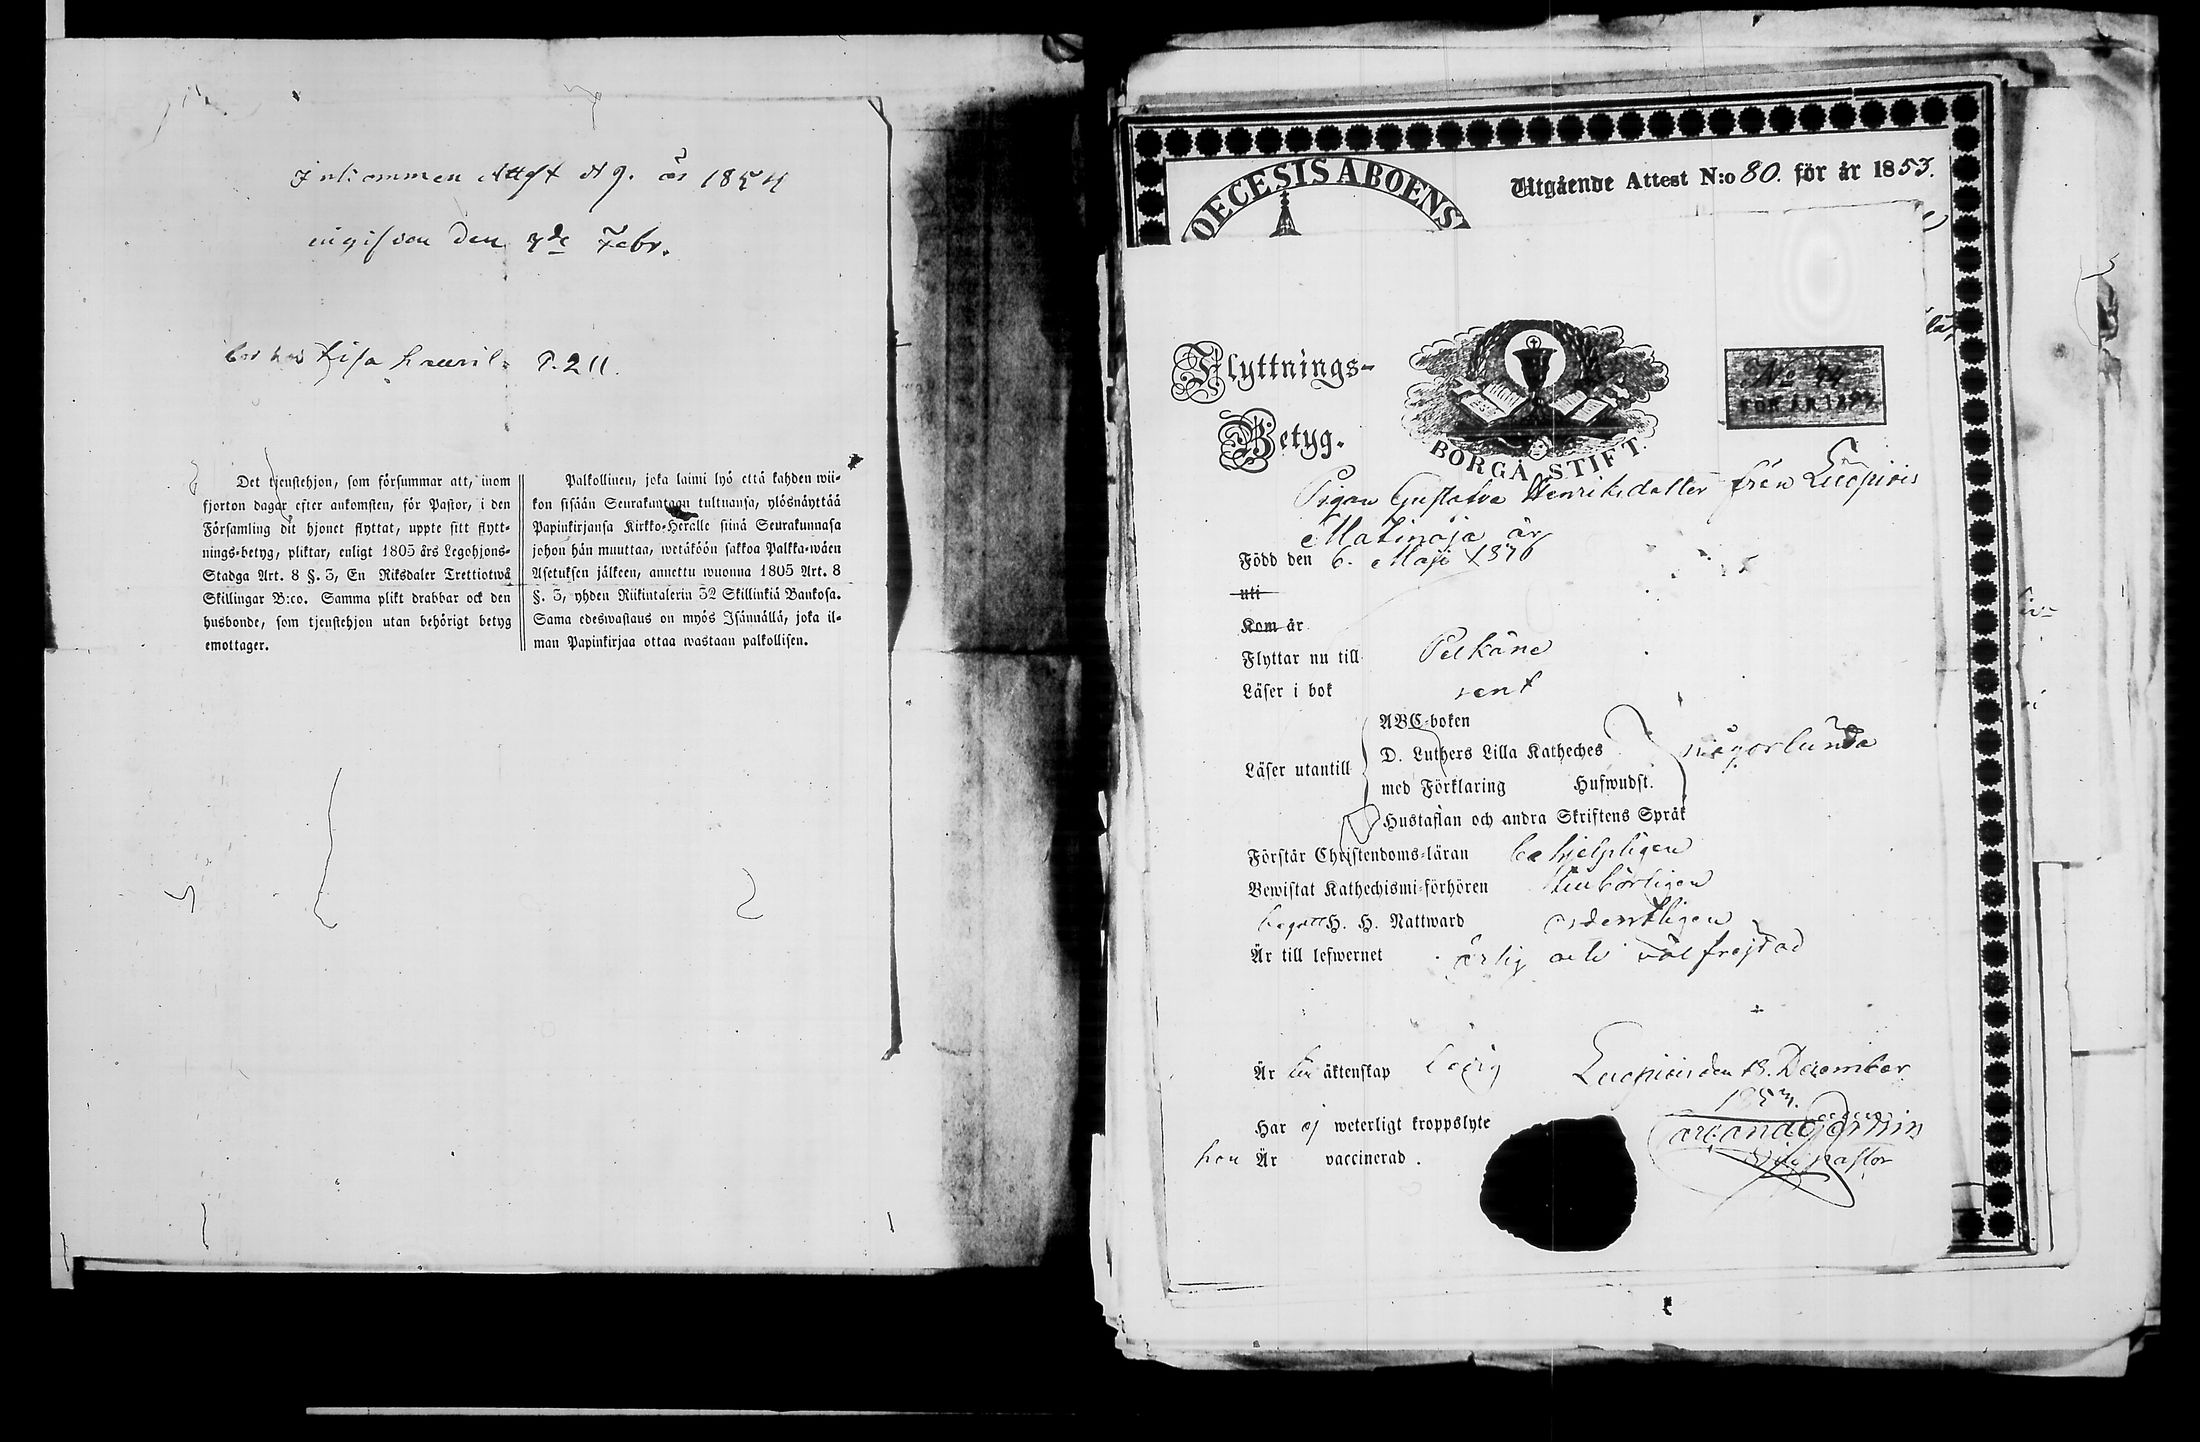 Inkommen Attest N 9. år 1854
ingifven den 7de Febr.
P. 211.
Det tjenstehjon, som försummar att, inom
fjorton dagar efter ankomsten, för Pastor, i den
Församling dit hjonet flyttat, uppte sitt flytt-
nings-betyg, pliktar, enligt 1805 års Legohjons-
Stadga Art. 8 §. 3, En Riksdaler Trettiotwå
Skillingar B:co. Samma plikt drabbar ock den
husbonde, som tjenstehjon utan behörigt betyg
emottager.
Palkollinen, joka laimi lyö että kahden wii-
kon sisään Seurakuntaan tultuansa, ylösnäyttää
Papinkirjansa Kirkko-Heralle siinä Seurakunnasa
johon hän muuttaa, wetäköön sakkoa Palkka-wäen
Asetuksen jälkeen, annettu wuonna 1805 Art. 8
§. 3, yhden Riikintalerin 32 Skillinkiä Bankosa.
Sama edeswastaus on myös Isännällä, joka il-
man Papinkirjaa ottaa wastaan palkollisen.
OECESIS ABOENS
Utgående Attest N:o 80. för år 1853.
Flyttnings-
Betyg.
BORGÅ STIFT.
No 44
FÖR ÅR 185
Pigan Gustafva Henriksdotter från Luopiois
Matinoja är
Född den 6. Maji
uti
Kom år
Flyttar nu till Pelkäne
Läser i bok rent
Läser utantill
ABC-boken
D. Luthers Lilla Katheches
med Förklaring Hufwudst.
Hustaflan och andra Skriftens Språk
någorlunda
Förstår Christendoms-läran behjelpligen
Bewistat Kathechismi-förhören tillbörligen
begått H. H. Nattward ordentligen
Är till lefwernet ärlig och välfrejdad
Är till äktenskap ledig
Luopiois den 18. December
1853.
Har ej weterligt kroppslyte
hon Är vaccinerad.
pastor